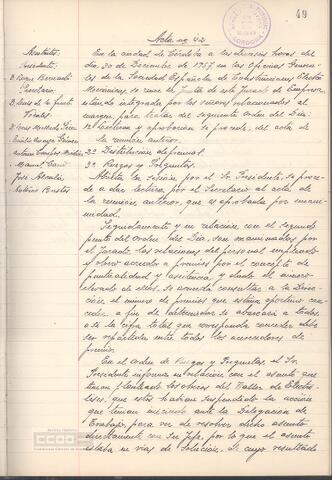 49
Acta nº 42
Asistentes:
Presidente:
Secretario:
D. Luis de la Fuente
Vocales:
Manuel Cano
José Alcaide
Antonio Bustos
En la ciudad de Córdoba a las dieciseis horas del
día 20 de Diciembre de 1957 en las Oficinas Genera-
les de la Sociedad Española de Construcciones Electro
Mecánicas, se reune el Jurado de Empresa
integrado por los señores relacionados al
margen para tratar del siguiente Orden del Día:
1º Lectura y aprobación si procede, del acta de
la reunión anterior.
2º Distribución de premios.
3º Ruegos y Preguntas.
Abierta la sesión por el Sr. Presidente, se proce-
de a dar lectura por el Secretario al acta de
la reunión anterior, que es aprobada por unani-
midad.
Seguidamente y en relación con el segundo
punto del Orden del Día, son examinados por
el Jurado, las relaciones de personal empleado
y obrero acreedor a premios por el concepto de
puntualidad y asistencia, y dado el número
elevado de ellos, se acuerda consultar a la Direc-
ción, el número de premios que estima oportuno conce-
der, a fin de determinar si abarcará a todos
o si la cifra total que corresponda conceder debe
ser repartida entre todos los acreedores de
premio.
En el orden de Ruegos y Preguntas el Sr.
Presidente informa en relación con el asunto que
tienen planteado los obreros del Taller de Electro-
lisis, que estos habían suspendido la acción
que tenían iniciada ante la Delegación de
Trabajo, para ver de resolver dicho asunto
directamente con su Jefe, por lo que el asunto
estaba en vías de solución. De cuyo resultado